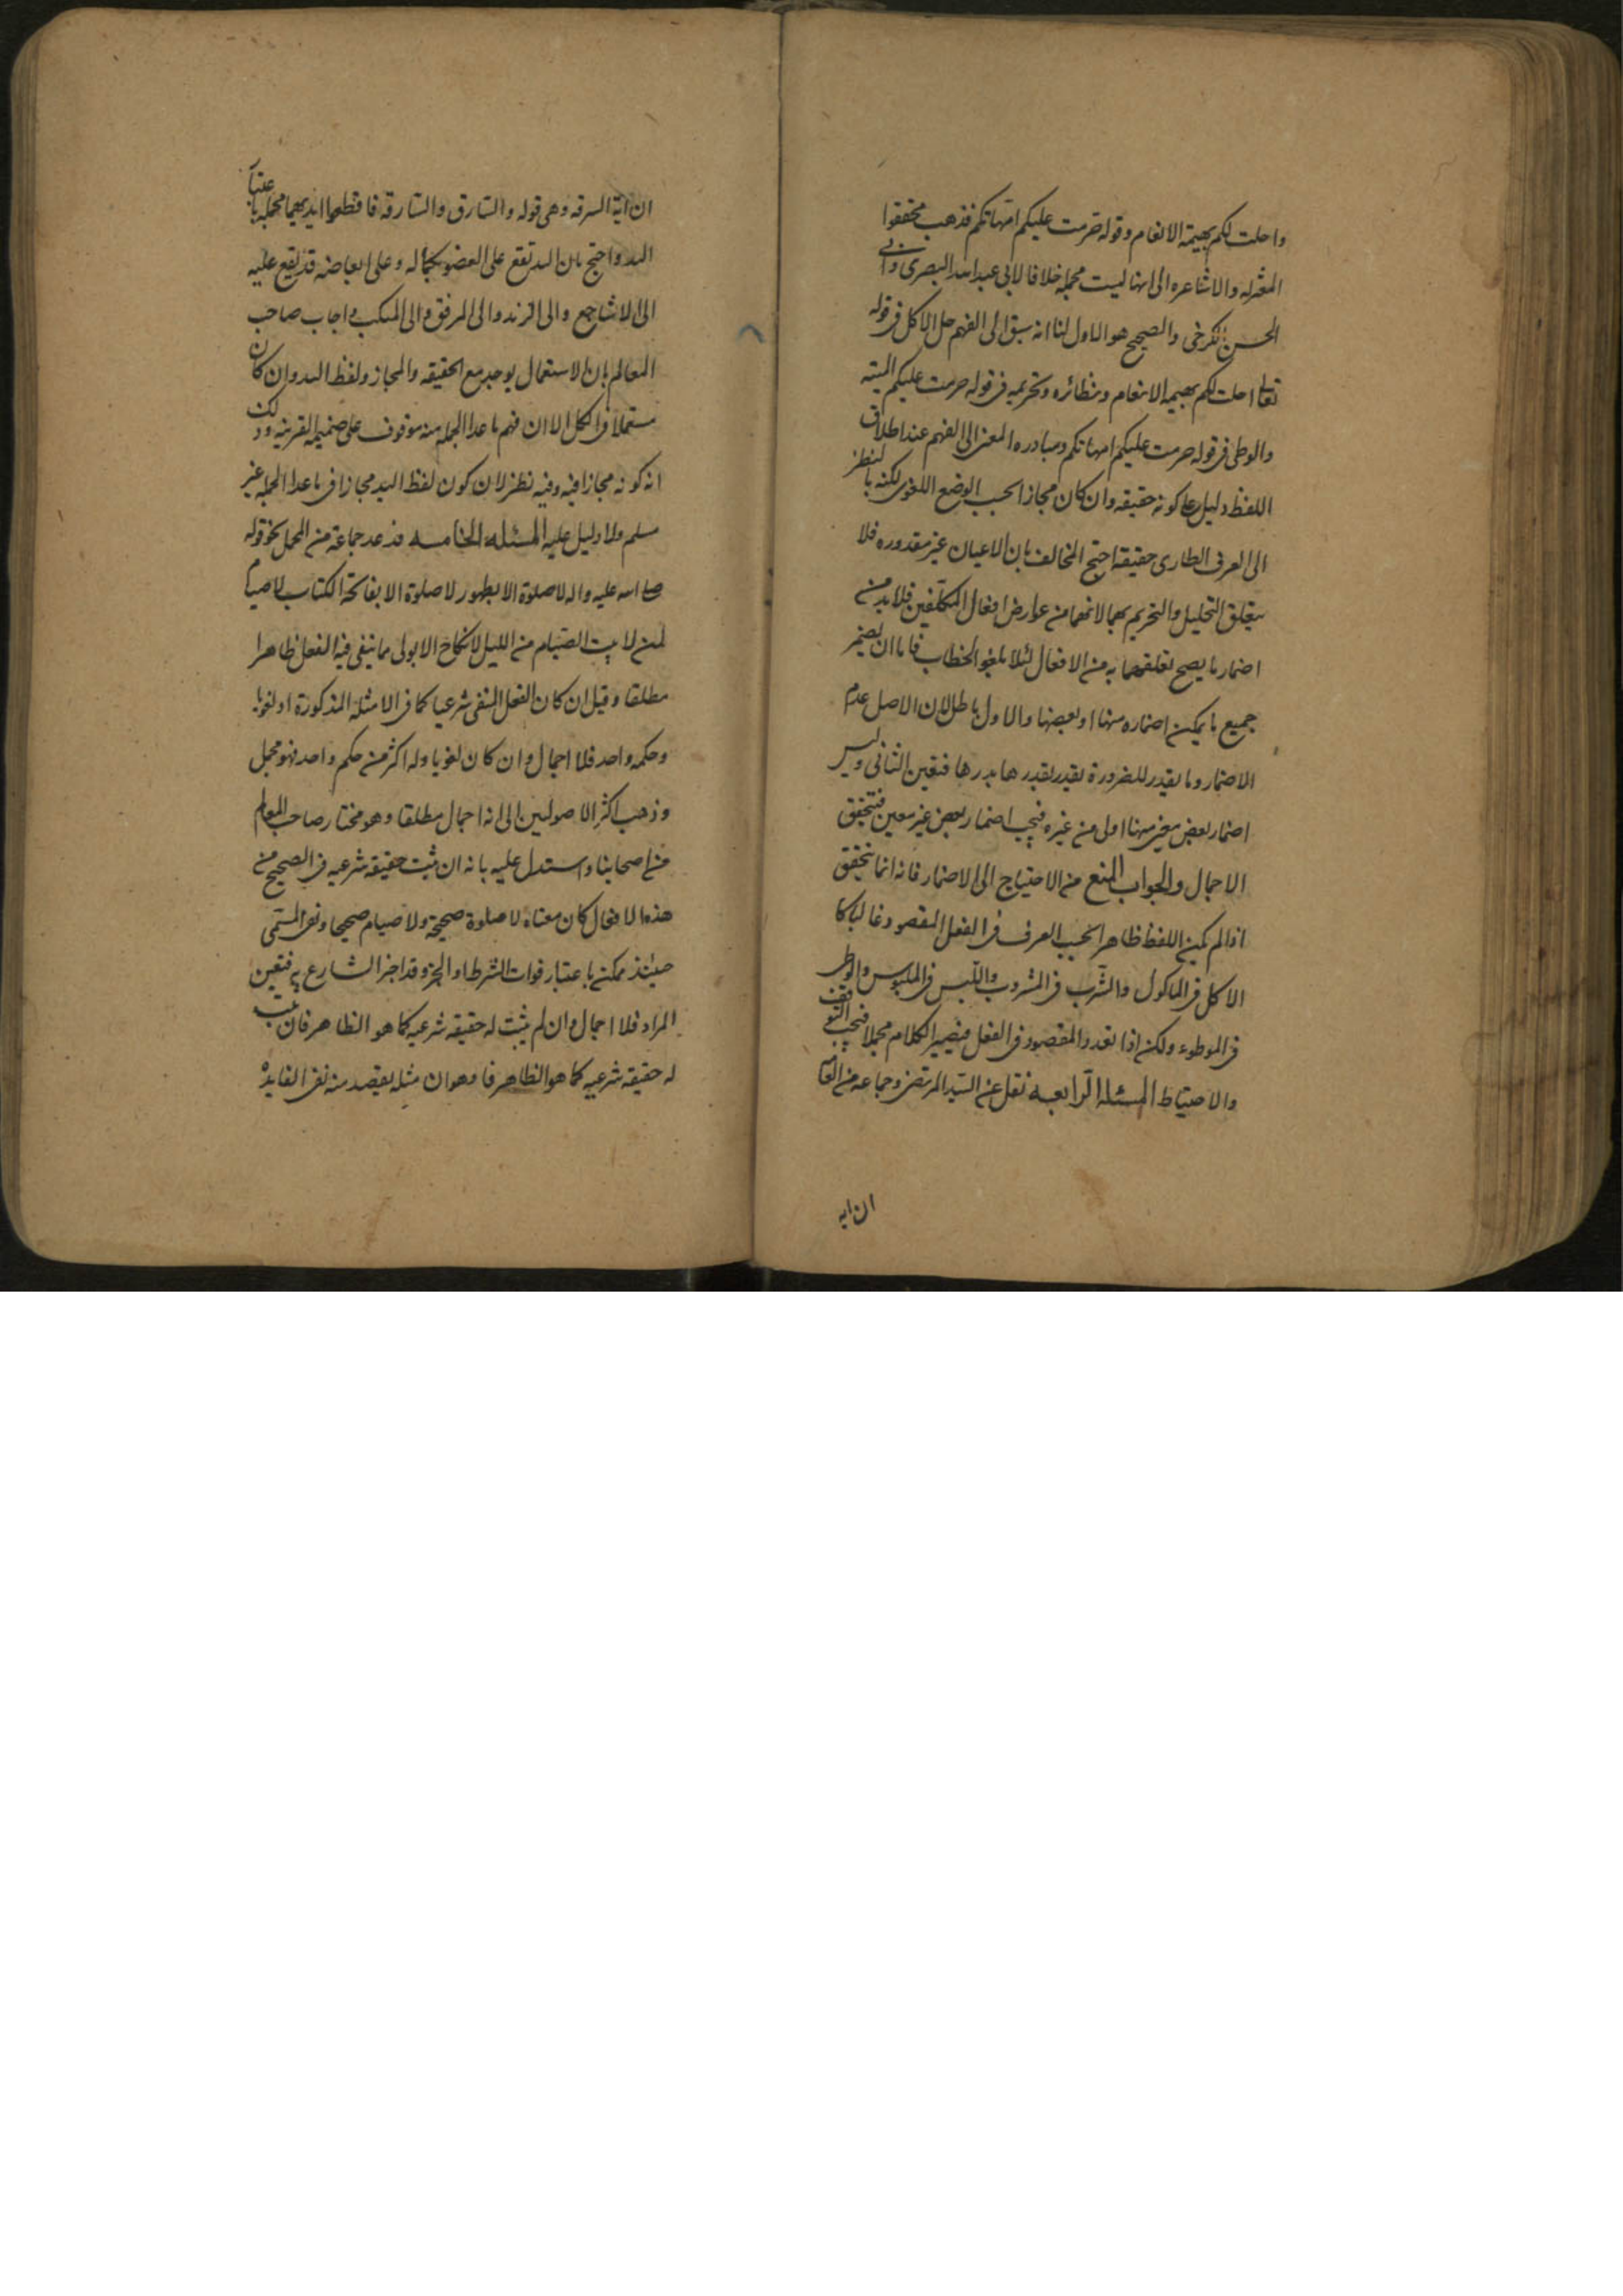 واحلت لكم بهيمة الانعام وقوله حرمت عليكم امهاتكم فذهب محققوا
المعتزله والاشاعره الى انها ليست مجمله خلافا لابى عبد الله البصرى وابى
الحسن الكرخى والصحيح هو الاول لنا انه سبق الى الفهم حل الاكل فى قوله
تعالى احلت لكم بهيمة الانعام ونظائره وتحريمه فى قوله حرمت عليكم الميته
والوطى فى قوله حرمت عليكم امهاتكم ومبادره المعنى الى الفهم عند اطلاق
اللفظ دليل على كونه حقيقه وان كان مجازا بحسب الوضع اللغوى لكنه بالنظر
الى العرف الطارى حقيقة احتج المخالف بان الاعيان غير مقدوره فلا
يتعلق التحليل والتحريم بهما لانهما من عوارض افعال المكلفين فلابد من
اضمار ما يصح تعلقهما به من الافعال لئلا يلغو الخطاب فاما ان يضمر
جميع ما يمكن اضماره منها او بعضها والاول باطل لان الاصل عدم
الاضمار وما يقدر للضرورة يقدر بقدرها فتعين الثانى وليس
اضمار بعض معين منها اولى من غيره فيجب اضمار بعض غير معين فتحقق
الاجمال والجواب المنع من الاحتياج الى الاضمار فانه انما يتحقق
اذا لم يكن اللفظ ظاهرا بحسب العرف فى الفعل المقصود غالبا كا
الاكل فى الماكول والشرب فى المشروب واللبس فى الملبوس والوطى
فى الموطوء ولكن اذا تعدد المقصود فى الفعل فيصير الكلام مجملا فيجب التوقف
والاحتياط المسئله الرابعه نقل عن السيد المرتضى وجماعه من العامه
ان ايه
ان اية السرقه وهى قوله والسارق والسارقه فاقطعوا ايديهما مجمله باعتبار
اليد واحتج بان اليد تقع على العضو بكماله وعلى ابعاضه قد يقع عليه
الى الاشاجع والى الزند والى المرفق والى المنكب واجاب صاحب
المعالم بان الاستعمال يوجد مع الحقيقه والمجاز ولفظ اليد وان كان
مستعملا فى الكل الا ان فهم ما عدا الجمله منه موقوف على ضميمه القرينه وذلك
انه كونه مجازا فيه وفيه نظر لان كون لفظ اليد مجازا فى ما عدا الجمله غير
مسلم ولا دليل عليه المسئله الخامسه قد عد جماعة من المجمل نحو قوله
صلى الله عليه واله لا صلوة الا بطهور لا صلوة الا بفاتحة الكتاب لا صيام
لمن لا يبت الصيام من الليل لا نكاح الا بولى مما ينفى فيه الفعل ظاهرا
مطلقا وقيل ان كان الفعل المنفى شرعيا كما فى الامثله المذكورة او لغويا
وحكمه واحد فلا اجمال وان كان لغويا وله اكثر من حكم واحد فهو مجمل
وذهب اكثر الاصولين الى انه اجمال مطلقا وهو مختار صاحب المعالم
من اصحابنا واستدل عليه بانه ان ثبت حقيقة شرعيه فى الصحيح من
هذه الافعال كان معناه لا صلوة صحيحة ولا صيام صحيحا ونفى المسمى
حينئذ ممكن باعتبار فوات الشرط او الجزء وقد اخبر الشارع به فتعين
المراد فلا اجمال وان لم يثبت له حقيقة شرعيه كما هو الظاهر فان ثبت
له حقيقة شرعيه كما هو الظاهر فا وهو ان مثله يقصد منه نفى الفايده